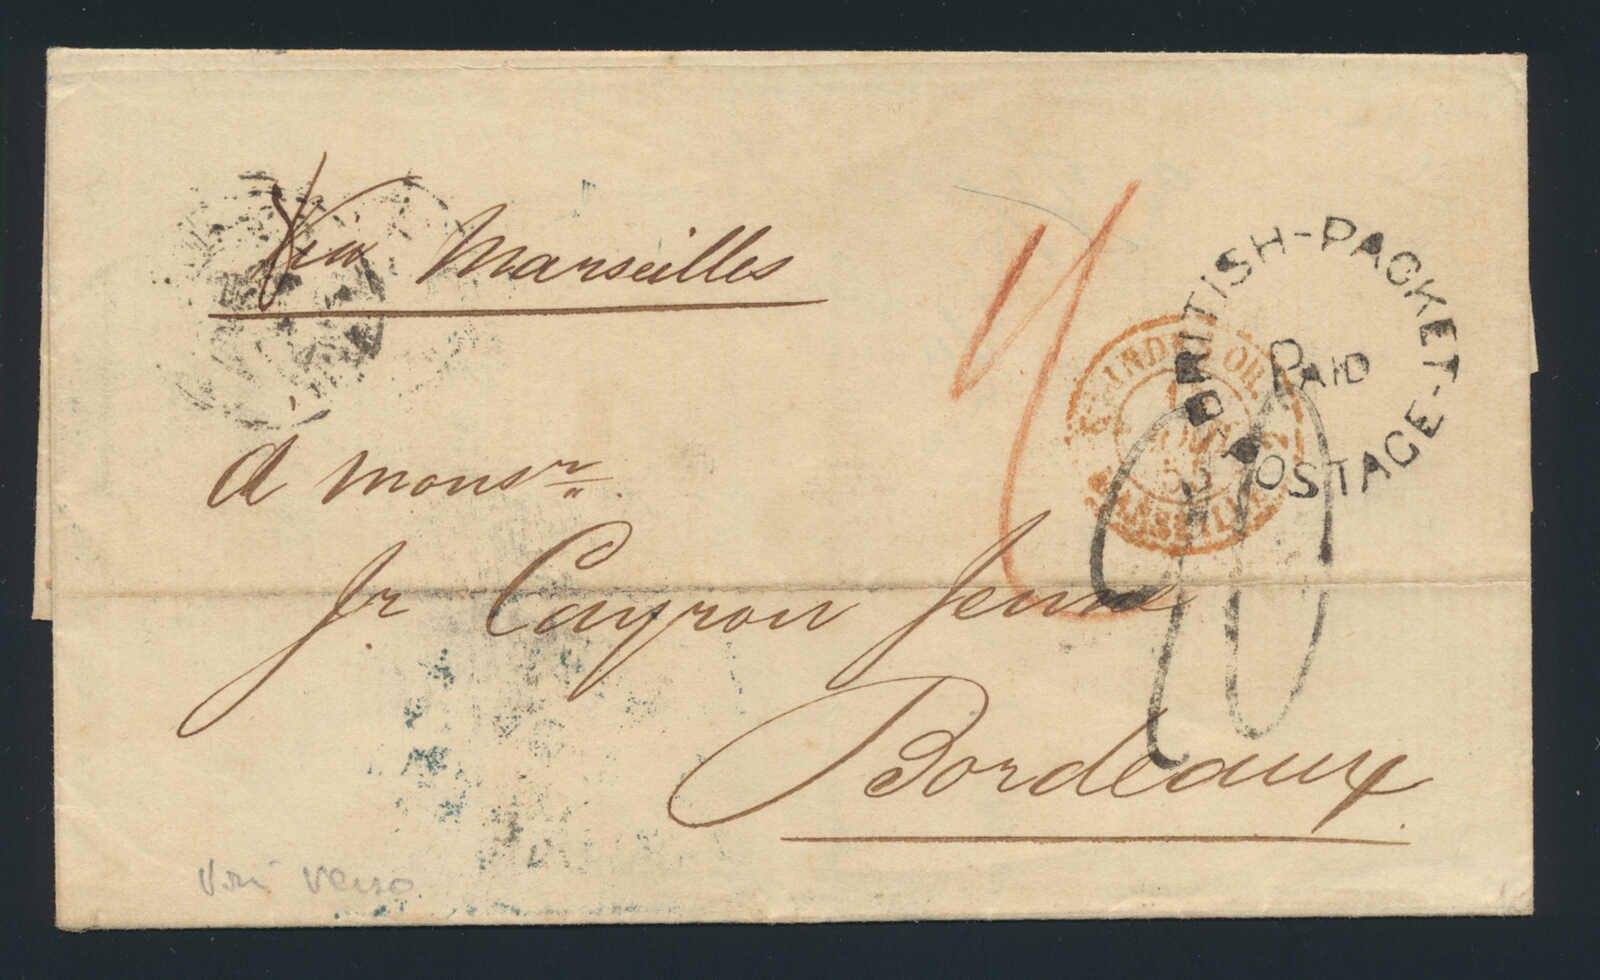 Via Marseilles
BRITISH-PACKET-POSTAGE-
PAID
MARSEILLE
A Monsr.
Jr Cayron Jeune
Bordeaux.
Voir verso